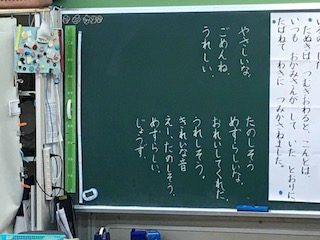 たぬきは、つむぎおわると、こんどは、
いつも おかみさんが して いた とおりに
たばねて わきに つみかさねました。
やさしいな。
ごめんね。
うれしい。
たのしそう。
めずらしいな。
おれいしてくれた。
うれしそう。
きれいな音
えー、たのしそう。
めずらしい。
じょうず。